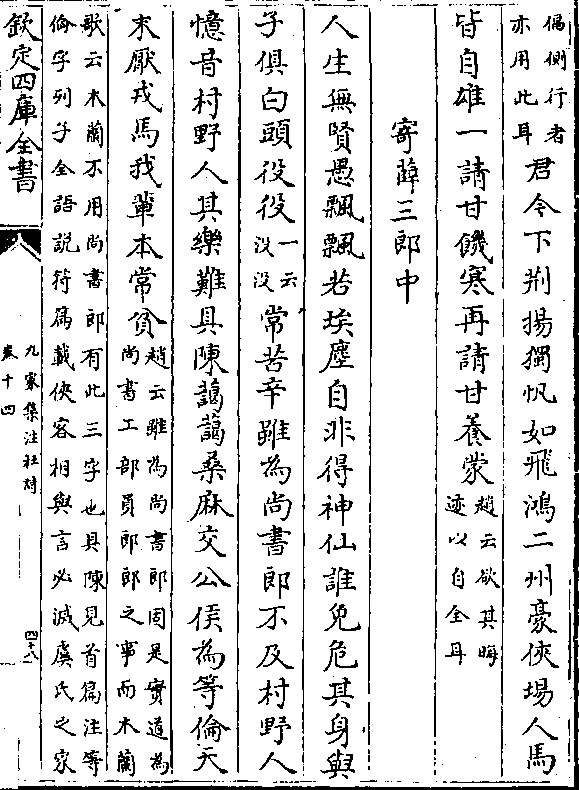 偪側行者
亦用此耳
君今下荆揚獨帆如飛鴻二州豪俠場人馬
皆自雄一請甘饑寒再請甘養蒙
趙云欲其晦
迹以自全耳
寄薛三郎中
人生無賢愚飄飄若埃塵自非得神仙誰免危其身與
子俱白頭役役
一云
没没
常苦辛雖為尚書郎不及村野人
憶昔村野人其樂難具陳藹藹桑麻交公侯為等倫天
未厭戎馬我輩本常貧
趙云雖為尚書郎固是實道為
尚書工部員郎郎之事而木蘭
歌云木蘭不用尚書郎有此三字也具陳見首篇注等
倫字列子全語説符篇載俠客相與言必滅虞氏之家
欽定四庫全書
九家集注杜詩
卷十四
四十八